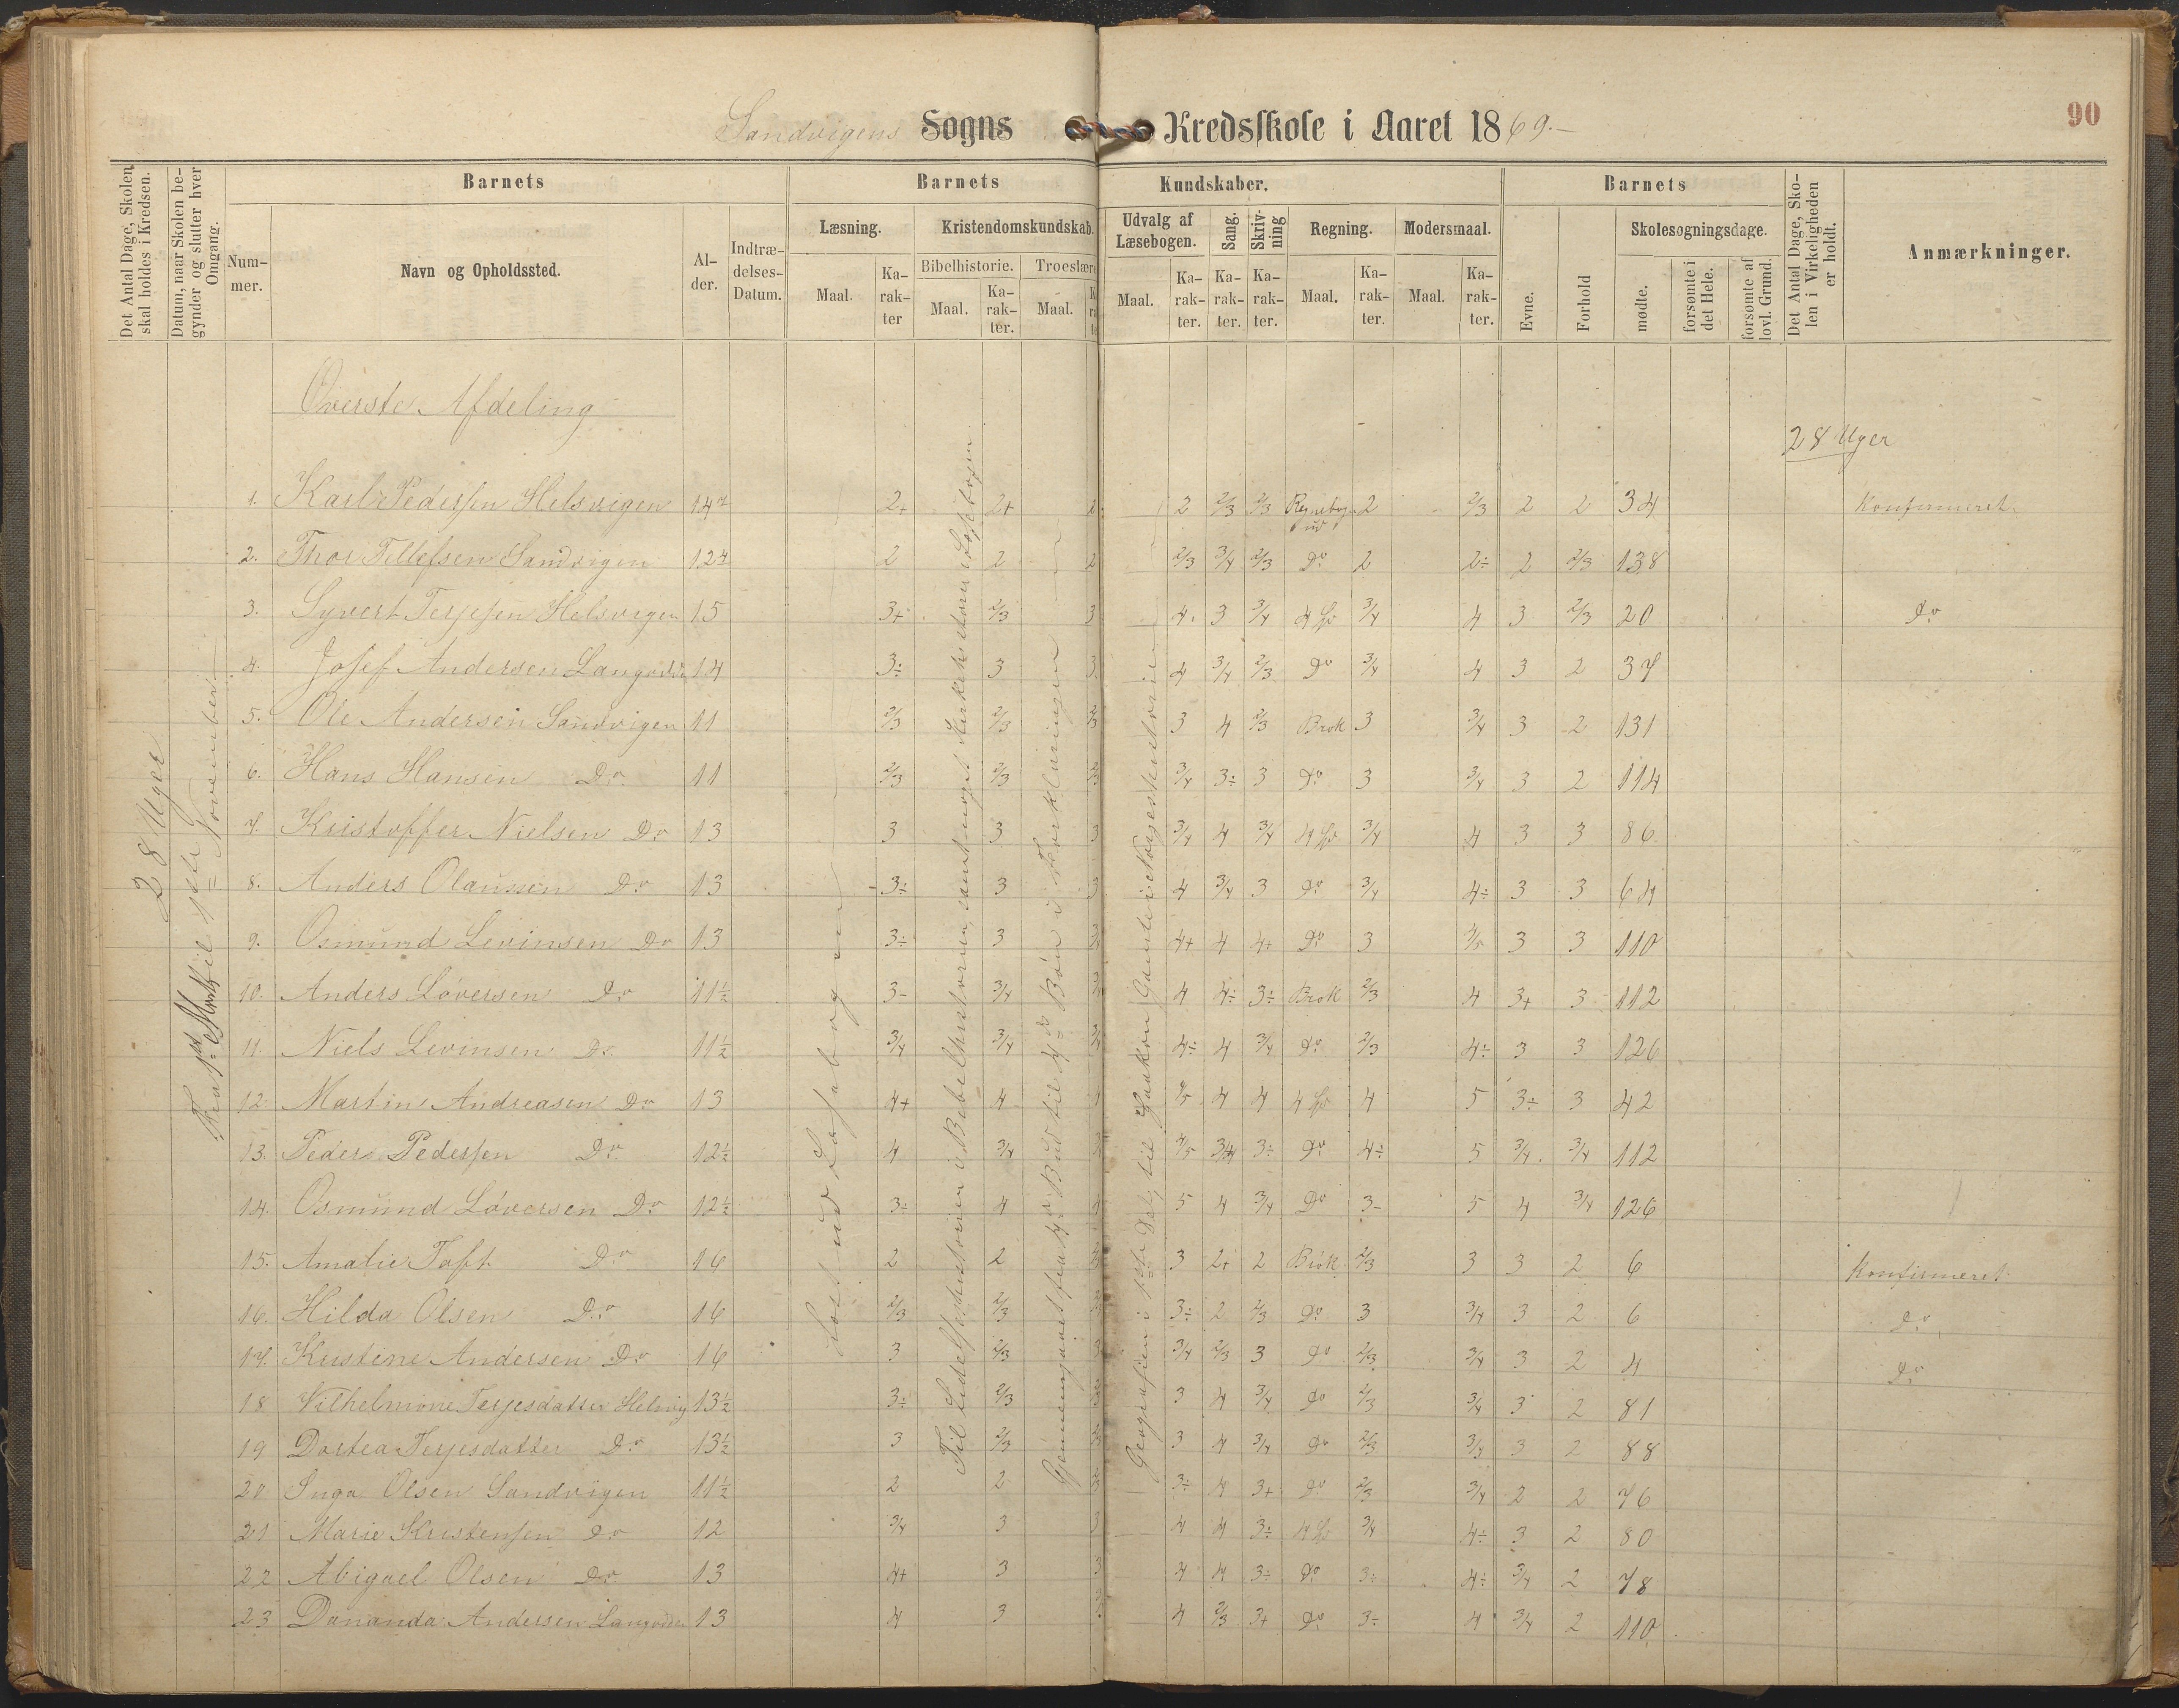 90
Sandvigens Sogns Kredsskole i Aaret 1869.—
Det Antal Dage, Skolen skal holdes i Kredsen.
Datum, naar Skolen begynder og slutter hver Omgang.
Barnets
Nummer.
Navn og Opholdssted.
Alder.
Indtrædelses-Datum.
Barnets Kundskaber.
Læsning.
Maal.
Karakter
Kristendomskundskab.
Bibelhistorie.
Maal.
Karakter.
Troeslære
Maal.
Udvalg af Læsebogen.
Maal.
Karakter.
Sang.
Karakter.
Skrivning
Karakter.
Regning.
Maal.
Karakter.
Modersmaal.
Maal.
Karakter.
Barnets
Evne.
Forhold
Skolesøgningsdage.
mødte.
forsømte i det Hele.
forsømte af lovl. Grund.
Det Antal Dage, Skolen i Virkeligheden er holdt.
Anmærkninger.
Øverste Afdeling
28 Uger
28 Uger
Fra 1ste Marts til 1ste November
Læst ud Læsebogen
Geografien i 1ste Del, til Haakon Gamle i Norgeshistorien
1. Karl Pedersen Helsvigen 14 2+ 2+ 2 2 2/3 2/3 Regnebogen ud 2 2/3 2 2 34 Konfirmeret
2. Thor Tellefsen Sandvigen 12 2 2 2 2/3 3/4 2/3 Do 2 2÷ 2 2/3 138
3. Syvert Terjesen Helsvigen 15 3+ 2/3 3 4. 3 3/4 3/4 4 3 2/3 20 Do
4. Josef Andersen Langodden 14 3÷ 3 3 4 3/4 2/3 Do 3/4 4 3 2 37
5. Ole Andersen Sandvigen 11 2/3 2/3 2/3 3 4 2/3 Brøk 3 3/4 3 2 131
6. Hans Hansen Do 11 2/3 2/3 2/3 3/4 3÷ 3 Do 3 3/4 3 2 114
7. Kristoffer Nielsen Do 13 3 3 3 3/4 4 3/4 3/4 4 3 3 86
8. Anders Olaussen Do 13 3÷ 3 3 4 3/4 3 Do 3/4 4÷ 3 3 64
9. Osmund Levinsen Do 13 3÷ 3 4+ 4 4+ Do 3 4/5 3 3 110
10. Anders Löversen Do 11½ 3- 3/4 4 4÷ 3÷ Brøk 2/3 4 3+ 3 112
11. Niels Levinsen Do 11½ 3/4 3/4 4÷ 4 3/4 Do 2/3 4÷ 3 3 126
12. Martin Andreasen Do 13 4+ 4 4 4/5 4 4 4 5 3÷ 3 42
13. Peder Pedersen Do 12½ 4 3/4 4/5 3/4 3÷ Do 4÷ 5 3/4 3/4 112
14. Osmund Löversen Do 12½ 3÷ 4 4 5 4 3/4 Do 3- 5 4 3/4 126
15. Amalie Toft Do 16 2 2 3 2+ 2 Brøk 2/3 3 3 2 6 Konfirmeret
16. Hilda Olsen Do 16 2/3 2/3 3÷ 2 2/3 Do 3 3/4 3 2 6 Do
17. Kristine Andersen Do 16 3 2/3 3 3/4 2/3 3 Do 2/3 3/4 3 2 4 Do
18 Vilhelmine Terjesdatter Helsvig 13½ 3÷ 2/3 3 4 3/4 Do 2/3 3/4 3 2 81
19 Dortea Terjesdatter Do 13½ 3 2/3 3 4 3/4 Do 2/3 3/4 3 2 88
20 Inga Olsen Sandvigen 11½ 2 2 3÷ 4 3+ Do 2/3 3/4 2 2 76
21 Marie Kristensen Do 12 3/4 3 3 4 4 3÷ 3/4 4÷ 3 2 80
22 Abigael Olsen Do 13 4+ 3 3 4 4 3÷ Do 3÷ 4÷ 3/4 2 78
23 Dananda Andersen Langodden 13 4 3 4 2/3 3+ Do 3÷ 4 3/4 2 110